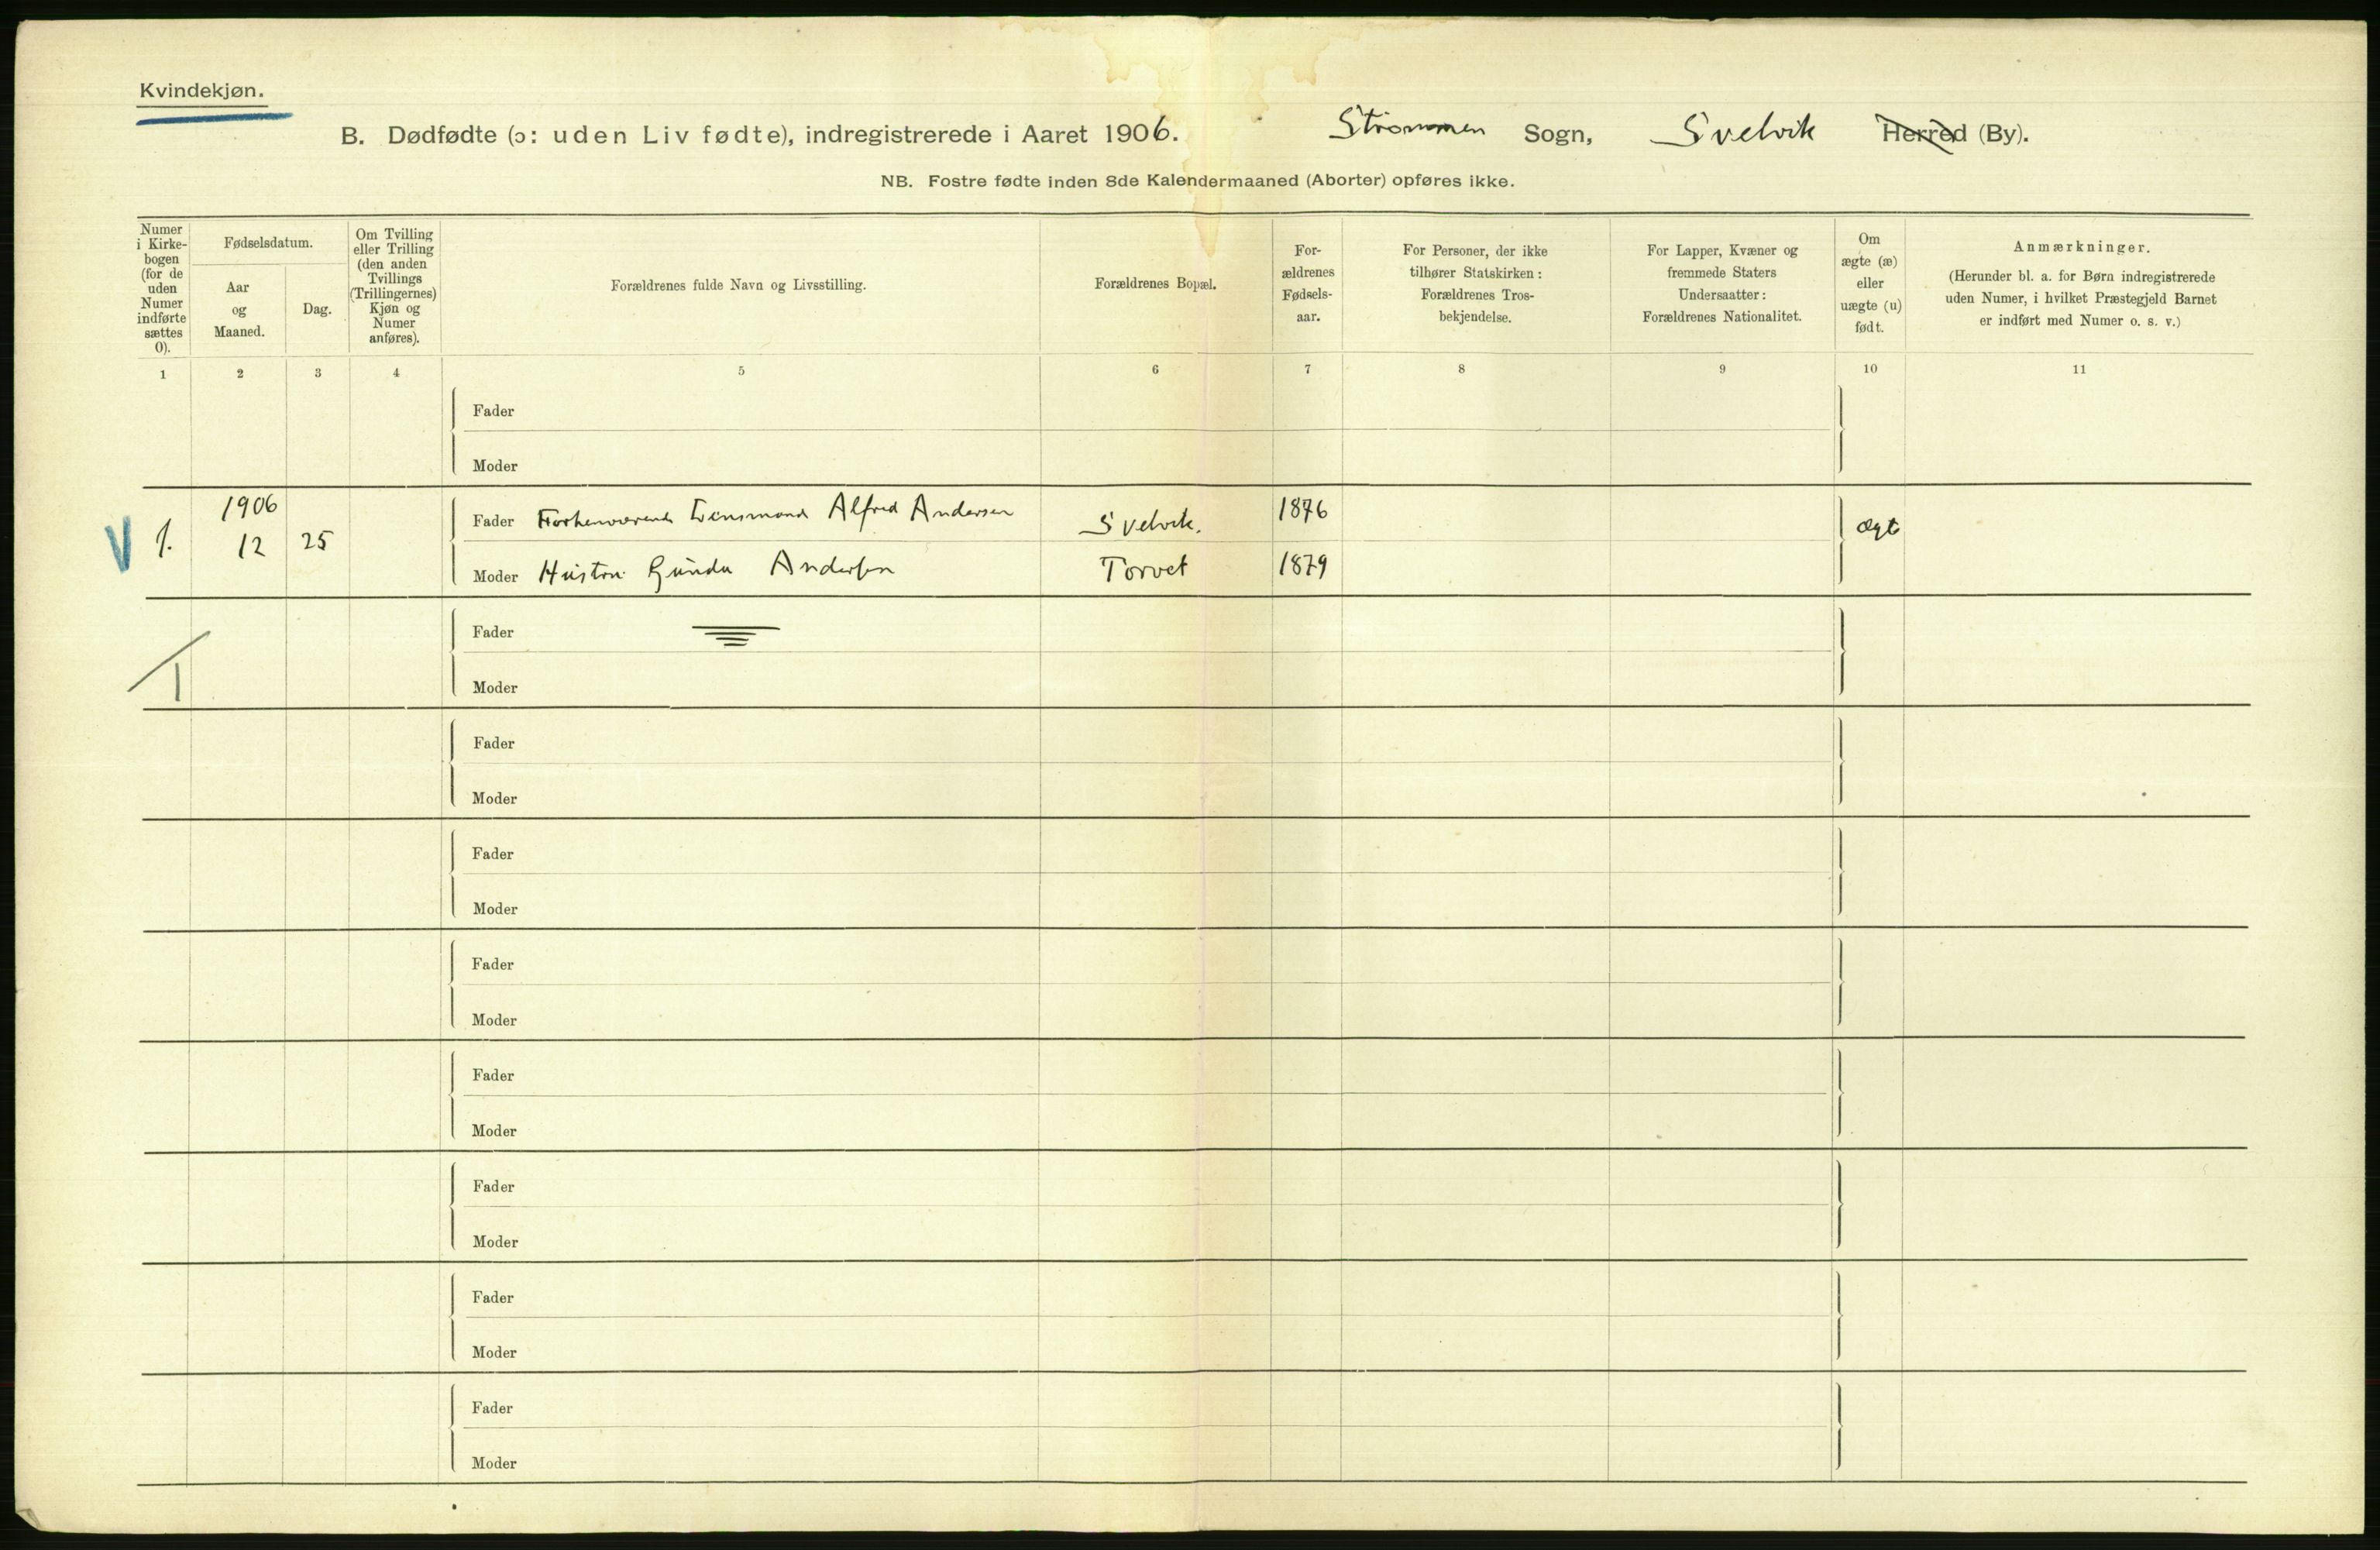 Kvindekjøn.
B. Dødfødte (ɔ: uden Liv fødte), indregistrerede i Aaret 1906. Strømmen Sogn, Svelvik Herred (By).
NB. Fostre fødte inden 8de Kalendermaaned (Aborter) opføres ikke.
Numer
i Kirke-
bogen
(for de
uden
Numer
indførte
sættes
0).
Fødselsdatum.
Aar
og
Maaned.
Dag.
Om Tvilling
eller Trilling
(den anden
Tvillings
(Trillingernes)
Kjøn og
Numer
anføres).
Forældrenes fulde Navn og Livsstilling.
Forældrenes Bopæl.
For-
ældrenes
Fødsels-
aar.
For Personer, der ikke
tilhører Statskirken:
Forældrenes Tros-
bekjendelse.
For Lapper, Kvæner og
fremmede Staters
Undersaatter:
Forældrenes Nationalitet.
Om
ægte (æ)
eller
uægte (u)
født.
Anmærkninger.
(Herunder bl. a. for Børn indregistrerede
uden Numer, i hvilket Præstegjeld Barnet
er indført med Numer o. s. v.)
1 2 3 4 5 6 7 8 9 10 11
Fader
Moder
V 1. 1906
12 25
Fader Alfred Andersen Svelvik. 1876 ægt
Moder Hustru Gunda Andersen Torvet 1879
Fader
Moder
1
Fader
Moder
Fader
Moder
Fader
Moder
Fader
Moder
Fader
Moder
Fader
Moder
Fader
Moder